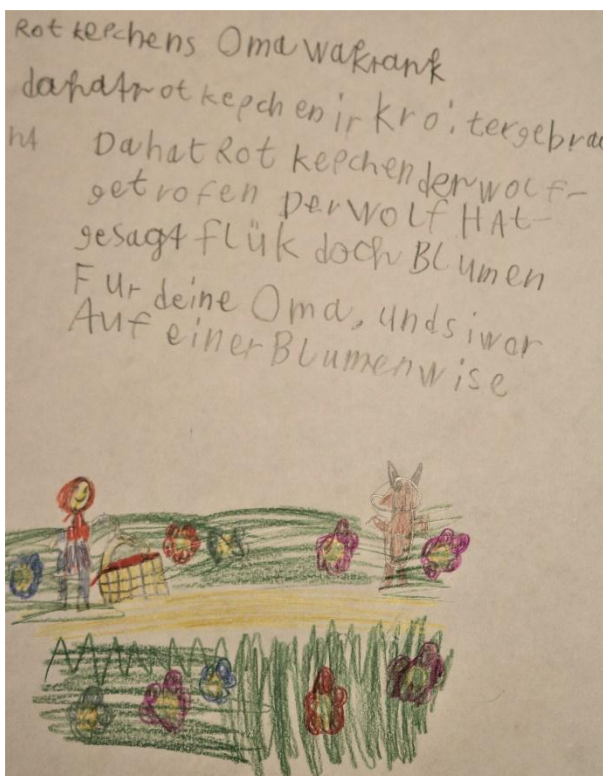 Rot kepchens Oma wakrank
dahatrot kepchen ir kroitergebrac
ht Dahat Rot kepchen der wolf-
getrofen Der WOLF HAt-
gesagt flük doch BLumen
Fur deine Oma, und si war
Auf einer BLumenwise